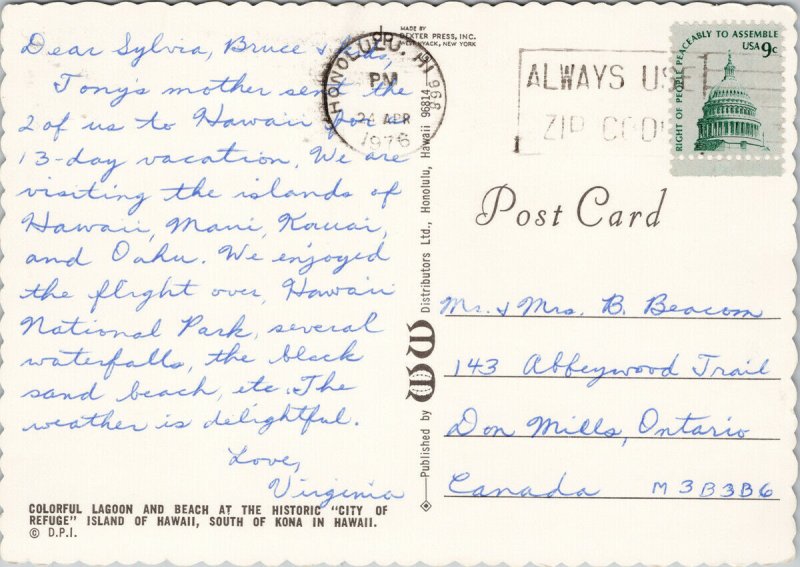 Dear Sylvia, Bruce & Kids,
Tony's mother sent the
2 of us to Hawaii for a
13-day vacation. We are
visiting the islands of
Hawaii, Maui, Kauai,
and Oahu. We enjoyed
the flight over, Hawaii
National Park, several
waterfalls, the black
sand beach, etc. The
weather is delightful.
Love,
Virginia
COLORFUL LAGOON AND BEACH AT THE HISTORIC "CITY OF
REFUGE" ISLAND OF HAWAII, SOUTH OF KONA IN HAWAII.
© D.P.I.
MADE BY
DEXTER PRESS, INC.
NYACK, NEW YORK
HONOLULU, HI 968
PM
24 APR
1976
ALWAYS USE
ZIP CODE
RIGHT OF PEOPLE PEACEABLY TO ASSEMBLE
USA 9c
Published by WW Distributors Ltd., Honolulu, Hawaii 96814
Post Card
Mr. & Mrs. B. Beacom
143 Abbeywood Trail
Don Mills, Ontario
Canada M3B3B6